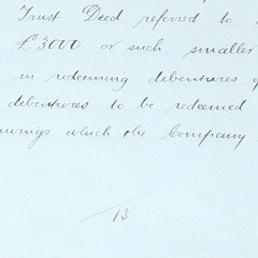 Trust Deed referred to
£3000 or such smaller
in redeeming debentures
debentures to be redeemed
which the Company
13